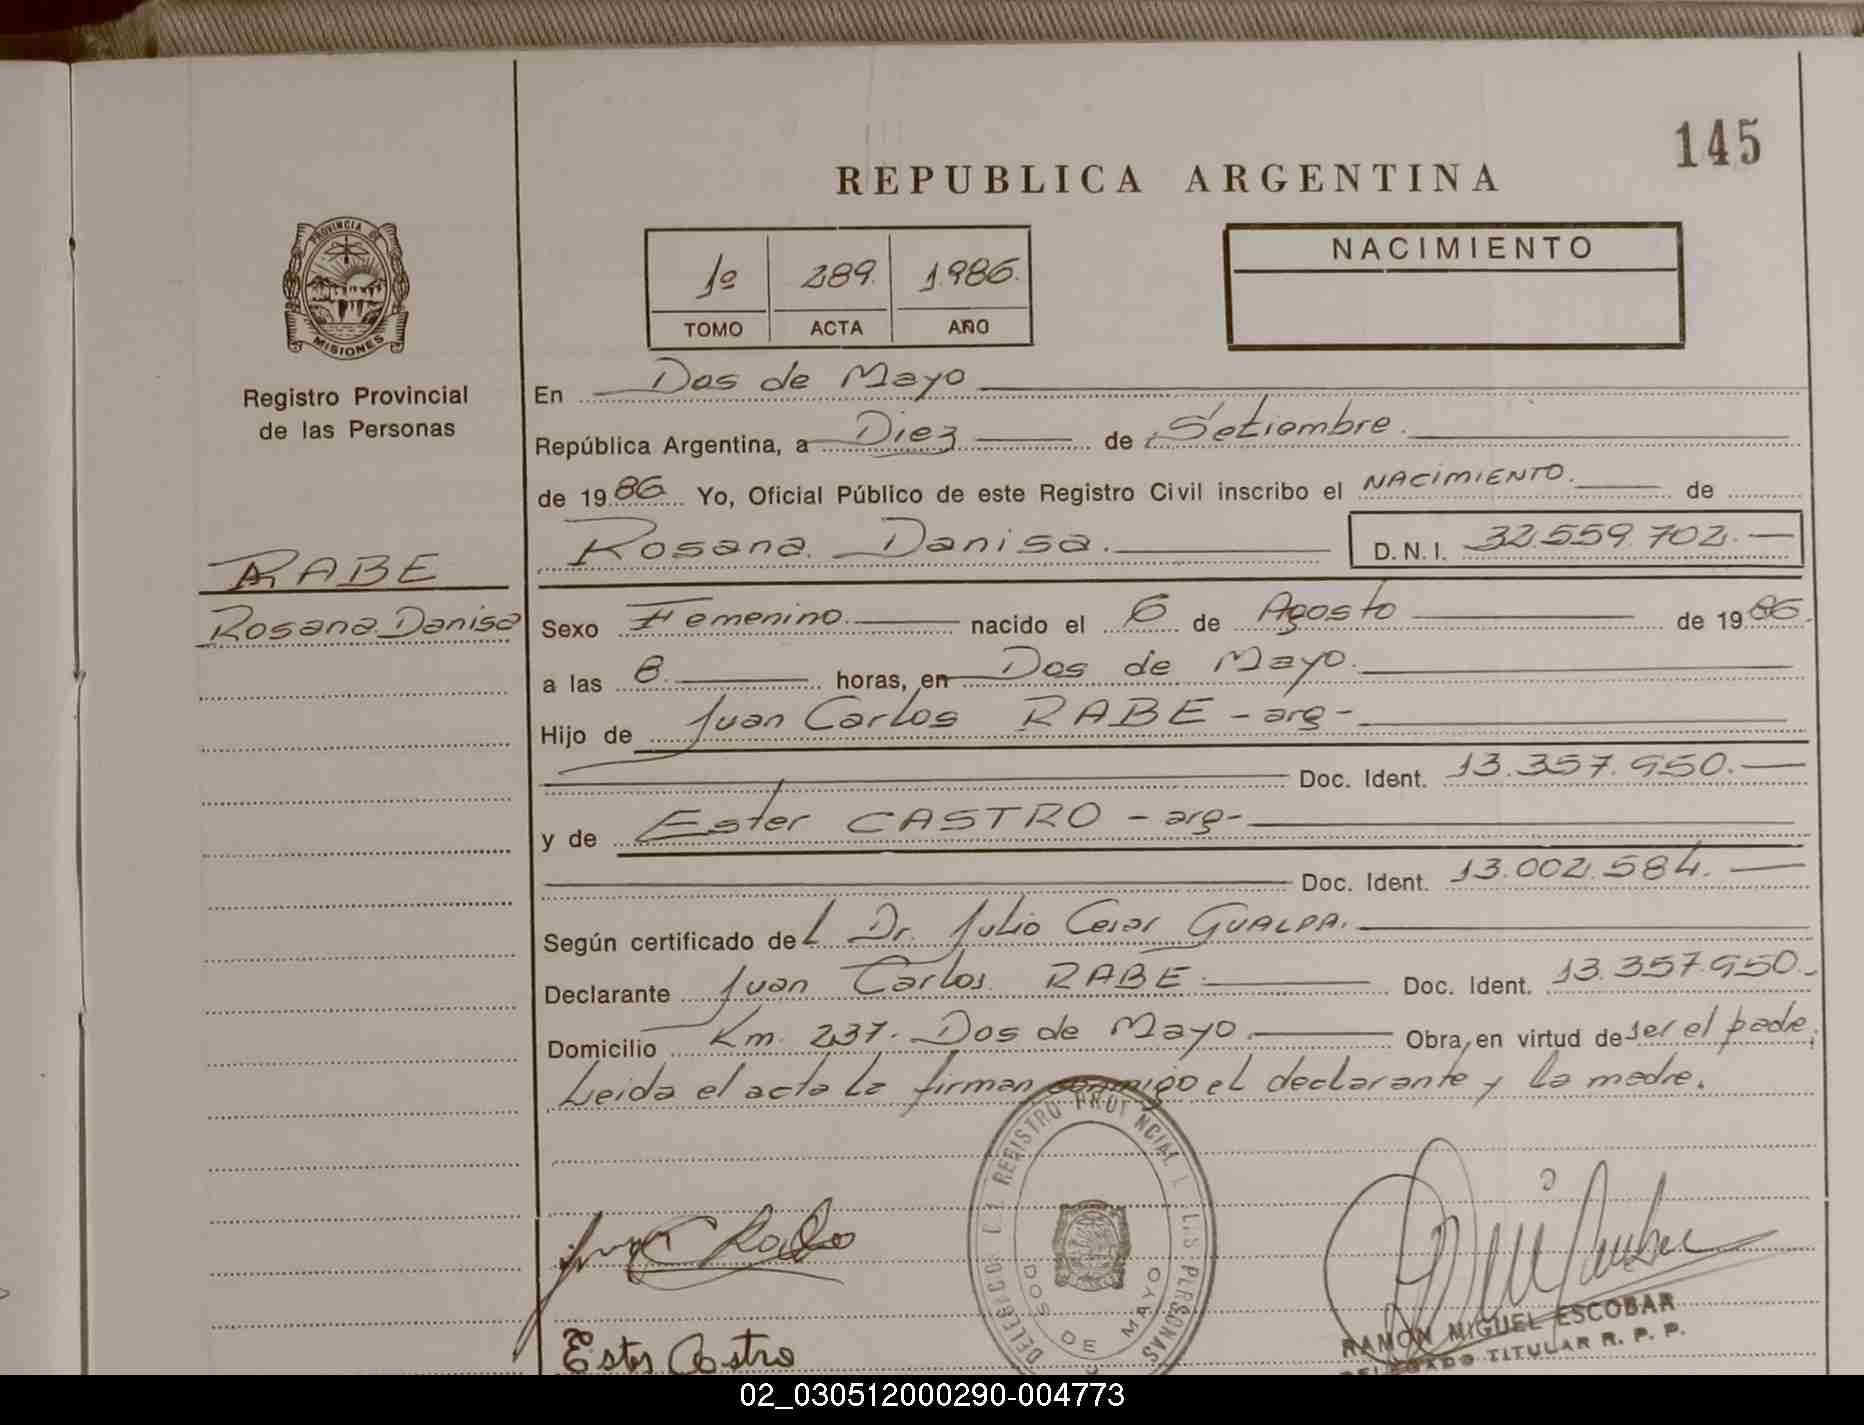 145
REPUBLICA ARGENTINA
PROVINCIA DE
MISIONES
Registro Provincial
de las Personas
1º 289. 1.986.
TOMO ACTA AÑO
NACIMIENTO
En Dos de Mayo
República Argentina, a Diez de Setiembre.
de 1986 Yo, Oficial Público de este Registro Civil inscribo el NACIMIENTO. de
Rosana Danisa. D.N.I. 32.559.702.-
RABE
Rosana Danisa
Sexo Femenino. nacido el 6 de Agosto de 1986.
a las 8. horas, en Dos de Mayo.
Hijo de Juan Carlos RABE - arg -
Doc. Ident. 13.357.950.-
y de Ester CASTRO - arg -
Doc. Ident. 13.002.584.-
Según certificado del Dr. Julio Cesar GUALPA.
Declarante Juan Carlos RABE Doc. Ident. 13.357.950.-
Domicilio Km. 237. Dos de Mayo. Obra, en virtud de ser el padre.
Leida el acta la firman conmigo el declarante y la madre.
REGISTRO PROVINCIAL DE LAS PERSONAS
DOS DE MAYO
Ester Castro
RAMON MIGUEL ESCOBAR
DELEGADO TITULAR R. P. P.
02_030512000290-004773